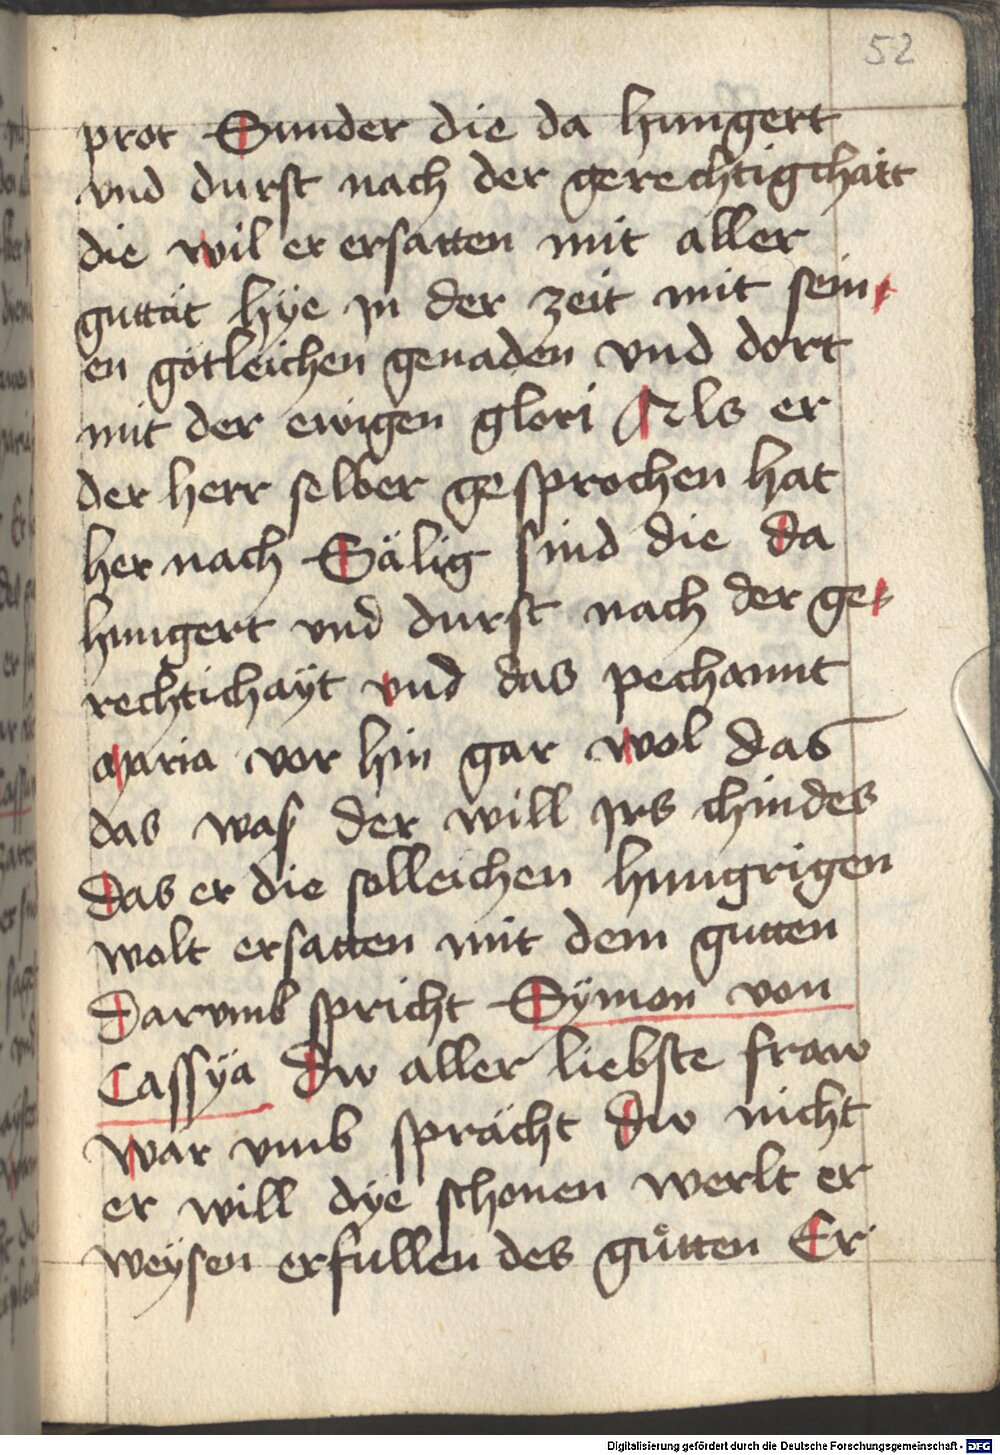 52
prot Sunder die da hungert
vnd durst nach der gerechtigchäit
die wil er ersatten mit aller
guttät hÿe jn der zeit mit sein
en götleichen genaden vnd dort
mit der ewigen glori Als er
der herr selber gesprochen hat
her nach Sälig sind die da
hungert vnd durst nach der ge
rechtichaÿt vnd das pechannt
Maria vor hin gar wol das
das was der will jrs chindes
Das er die solleichen hungrigen
wolt ersatten mit dem gutten
Darvmb spricht Sÿmon von
Cassÿa Dw aller liebste fraw
War vmb sprächt dw nicht
er will dÿe schonen werlt er
weÿsen erfullen des gůtten Er
Digitalisierung gefördert durch die Deutsche Forschungsgemeinschaft - DFG